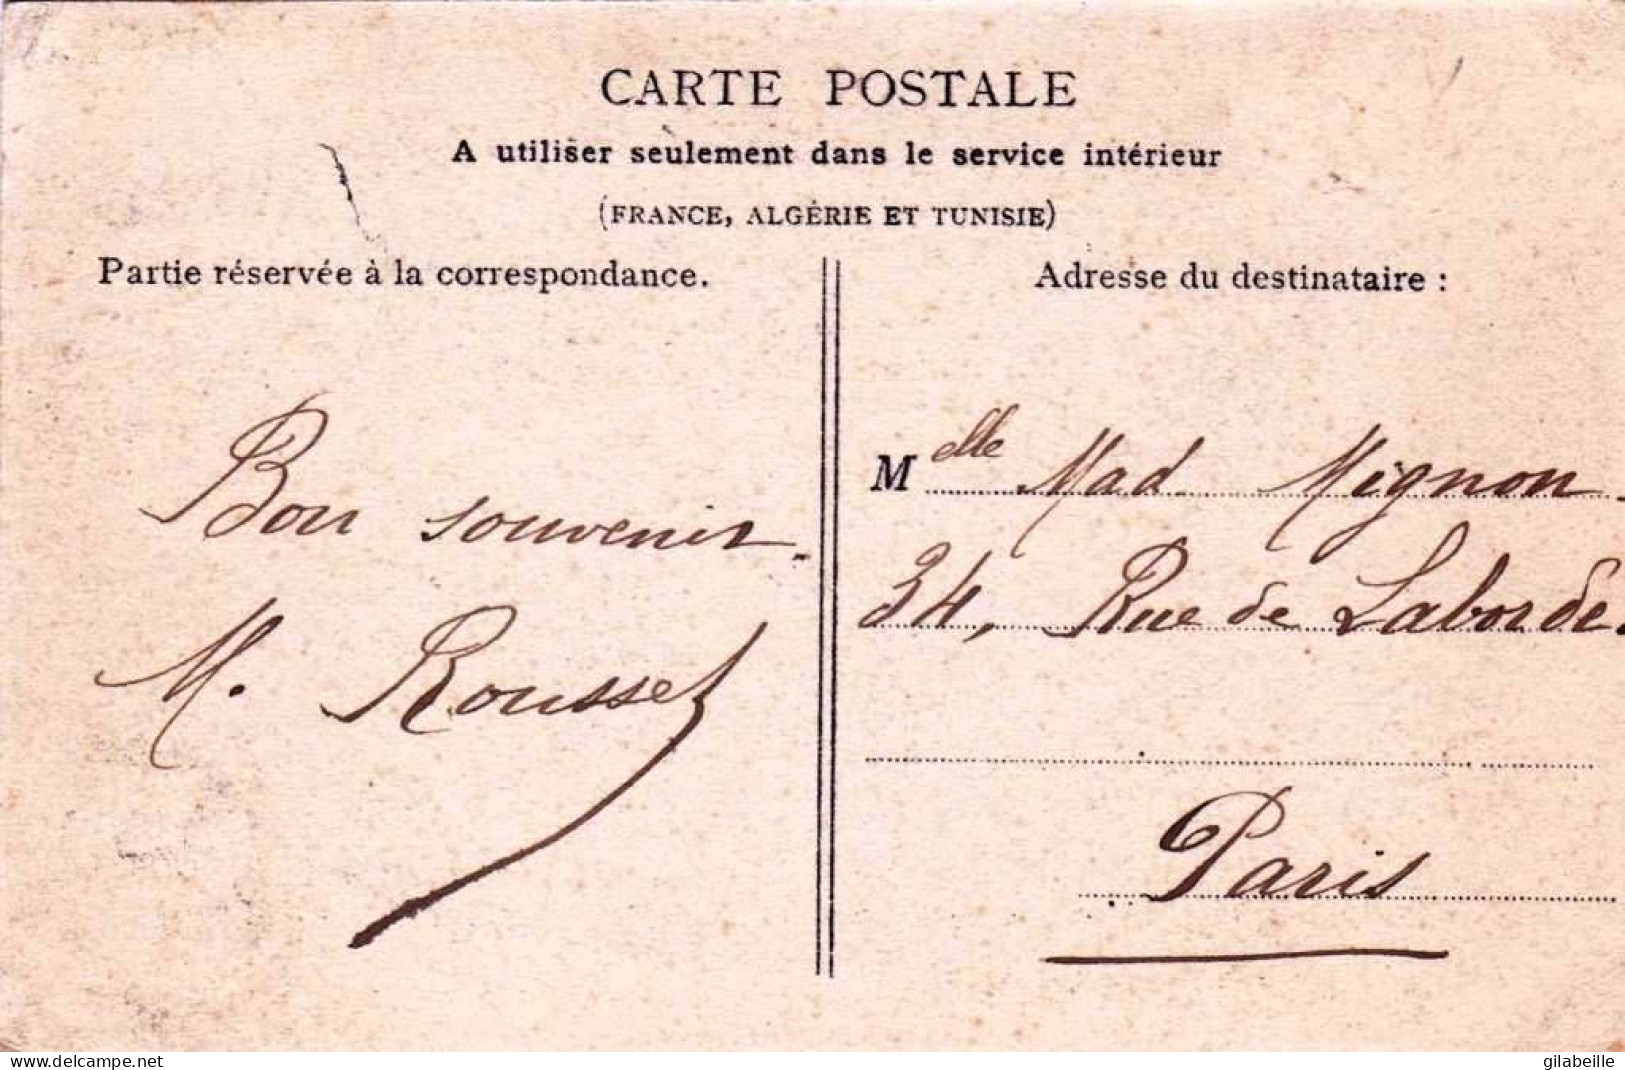 CARTE POSTALE
A utiliser seulement dans le service intérieur
(FRANCE, ALGÉRIE ET TUNISIE)
Partie réservée à la correspondance.
Bon souvenir.
M. Rousset
Adresse du destinataire :
Melle Mad Mignon
34, Rue de Laborde.
Paris
www.delcampe.net
gilabeille